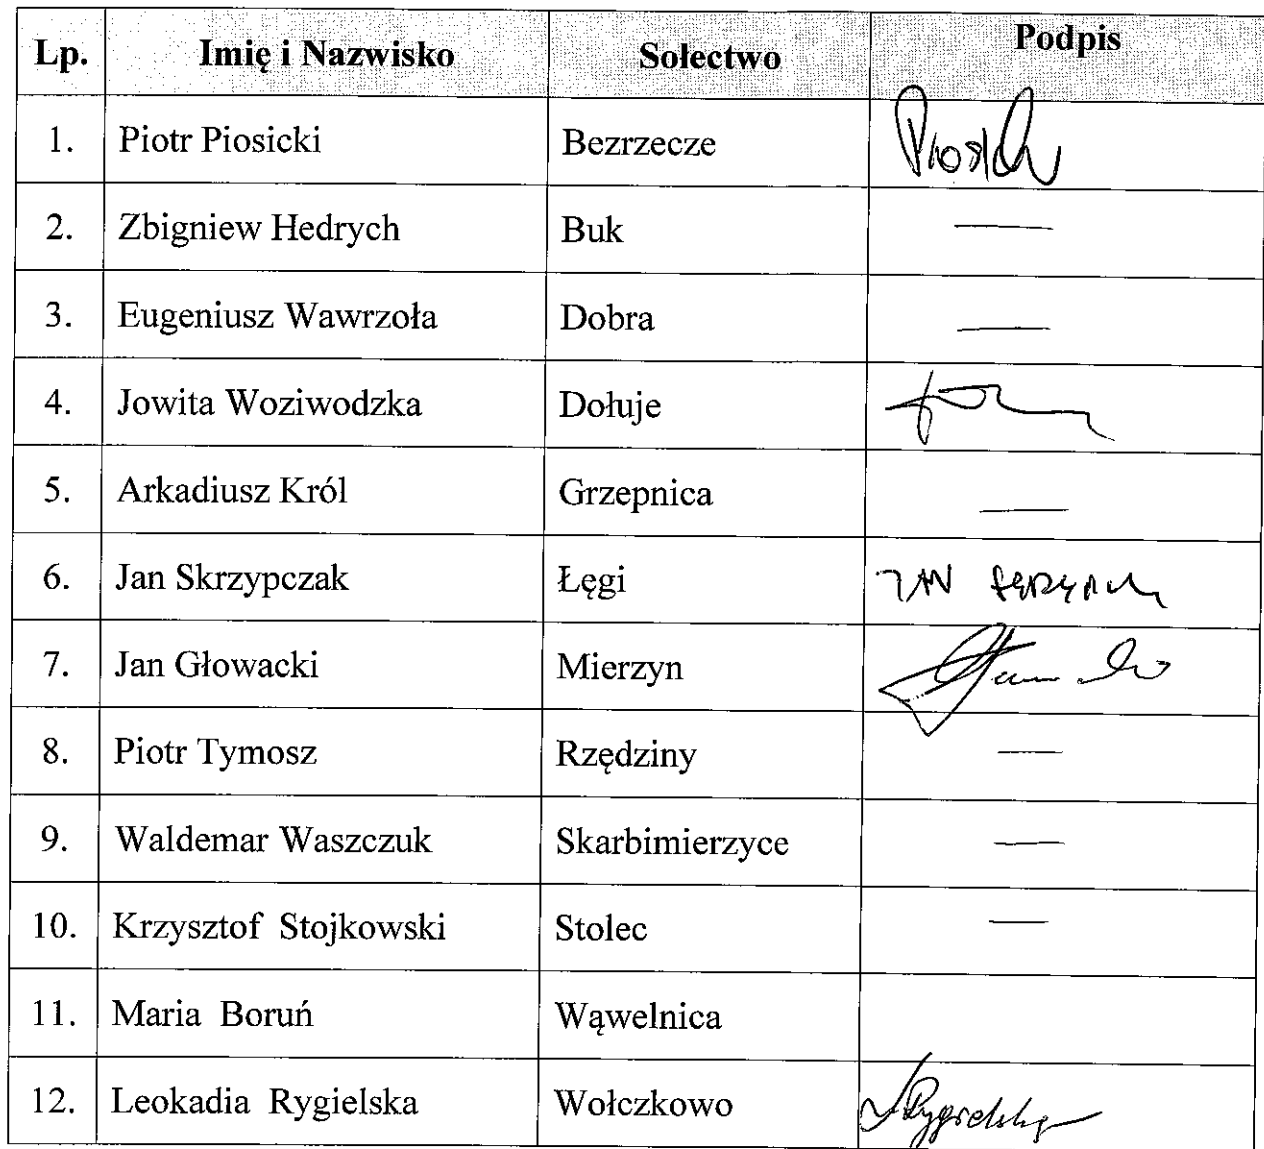 Lp. Imię i Nazwisko Sołectwo Podpis
1. Piotr Piosicki Bezrzecze
2. Zbigniew Hedrych Buk —
3. Eugeniusz Wawrzoła Dobra —
4. Jowita Woziwodzka Dołuje
5. Arkadiusz Król Grzepnica —
6. Jan Skrzypczak Łęgi JAN
7. Jan Głowacki Mierzyn
8. Piotr Tymosz Rzędziny —
9. Waldemar Waszczuk Skarbimierzyce —
10. Krzysztof Stojkowski Stolec —
11. Maria Boruń Wąwelnica
12. Leokadia Rygielska Wołczkowo